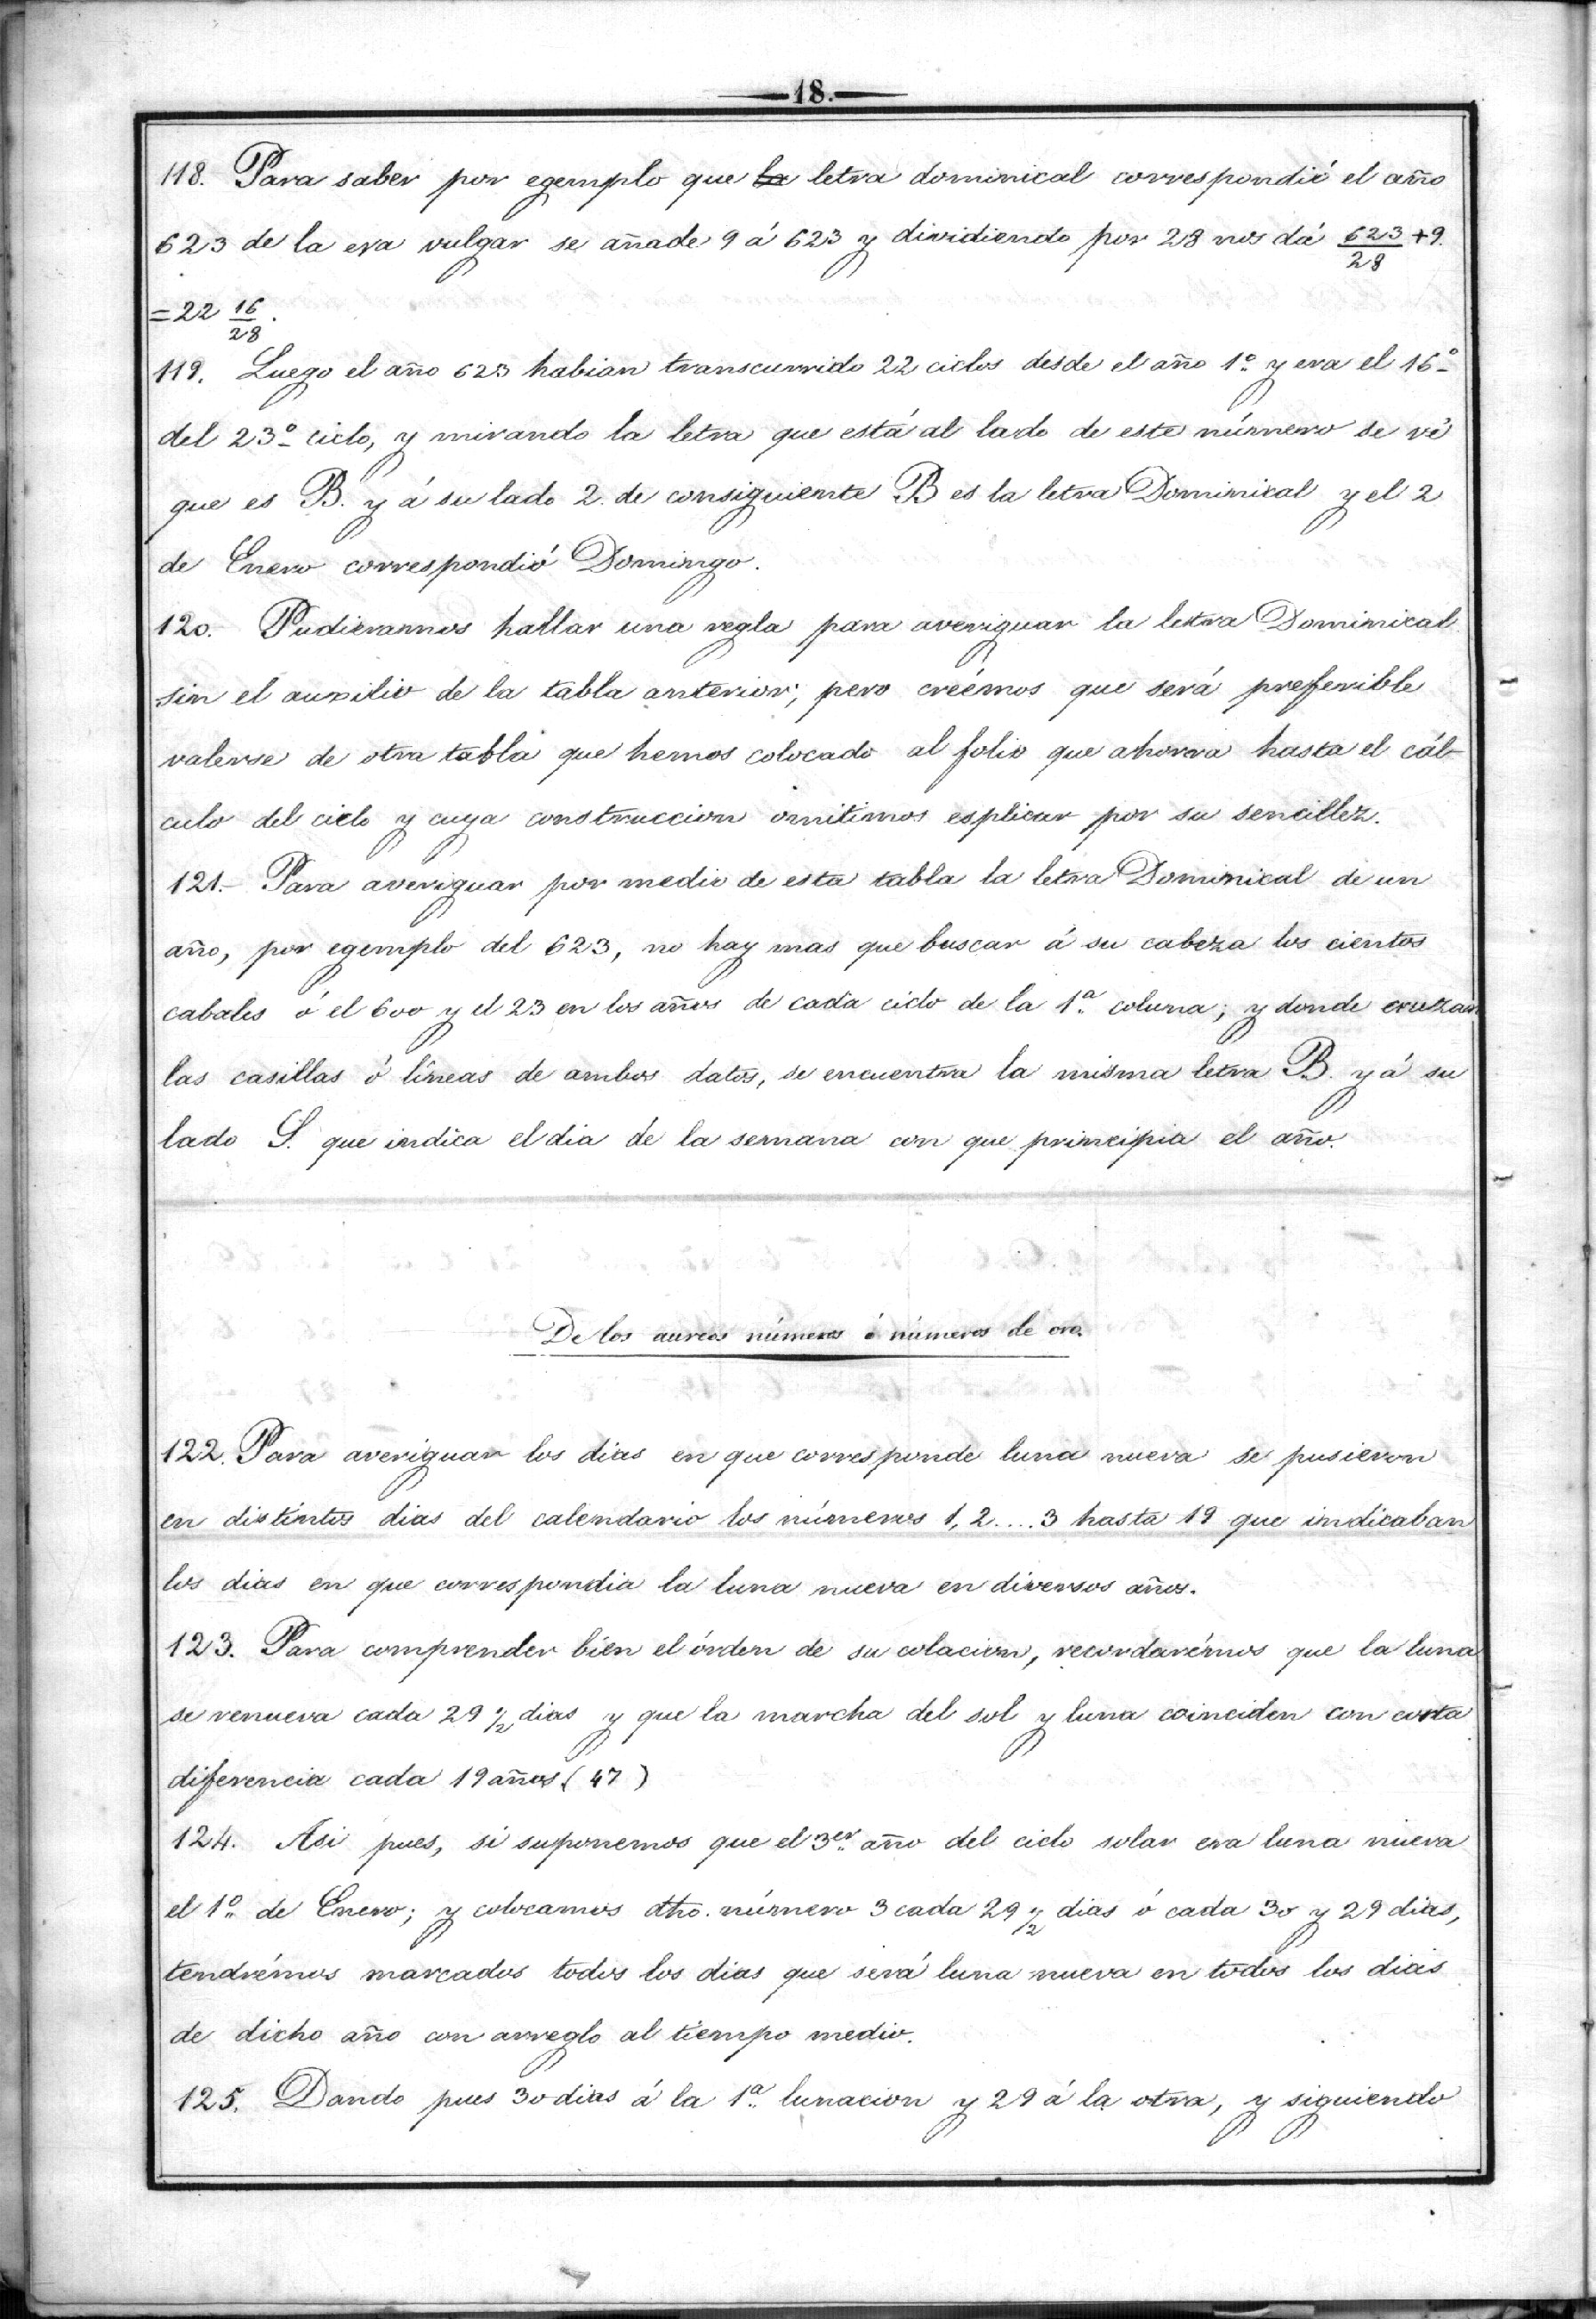 18.
118. Para saber por egemplo que la letra dominical correspondió el año
623 de la era vulgar se añade 9 á 623 y dividiendo por 28 nos dá 623/28 + 9.
= 22 16/28.
119. Luego el año 623 habian transcurrido 22 ciclos desde el año 1º y era el 16º
del 23º ciclo, y mirando la letra que está al lado de este número se vé
que es B. y á su lado 2. de consiguiente B es la letra Dominical y el 2
de Enero correspondió Domingo.
120. Pudieramos hallar una regla para averiguar la letra Dominical
sin el auxilio de la tabla anterior; pero creémos que será preferible
valerse de otra tabla que hemos colocado al folio que ahorra hasta el cál-
culo del ciclo y cuya construccion omitimos esplicar por su sencillez.
121.- Para averiguar por medio de esta tabla la letra Dominical de un
año, por egemplo del 623, no hay mas que buscar á su cabeza los cientos
cabales ó el 600 y el 23 en los años de cada ciclo de la 1ª coluna; y donde cruzan
las casillas ó líneas de ambos datos, se encuentra la misma letra B. y á su
lado S. que indica el dia de la semana con que principia el año.
De los aureos números ó números de oro.
122. Para averiguar los dias en que corresponde luna nueva se pusieron
en distintos dias del calendario los números 1, 2....3 hasta 19 que indicaban
los dias en que correspondia la luna nueva en diversos años.
123. Para comprender bien el órden de su colacion, recordarémos que la luna
se renueva cada 29 1/2 dias y que la marcha del sol y luna coinciden con corta
diferencia cada 19 años (47)
124. Asi pues, si suponemos que el 3er año del ciclo solar era luna nueva
el 1º de Enero; y colocamos dho. número 3 cada 29 1/2 dias ó cada 30 y 29 dias,
tendrémos marcados todos los dias que será luna nueva en todos los dias
de dicho año con arreglo al tiempo medio.
125. Dando pues 30 dias á la 1ª lunacion y 29 á la otra, y siguiendo